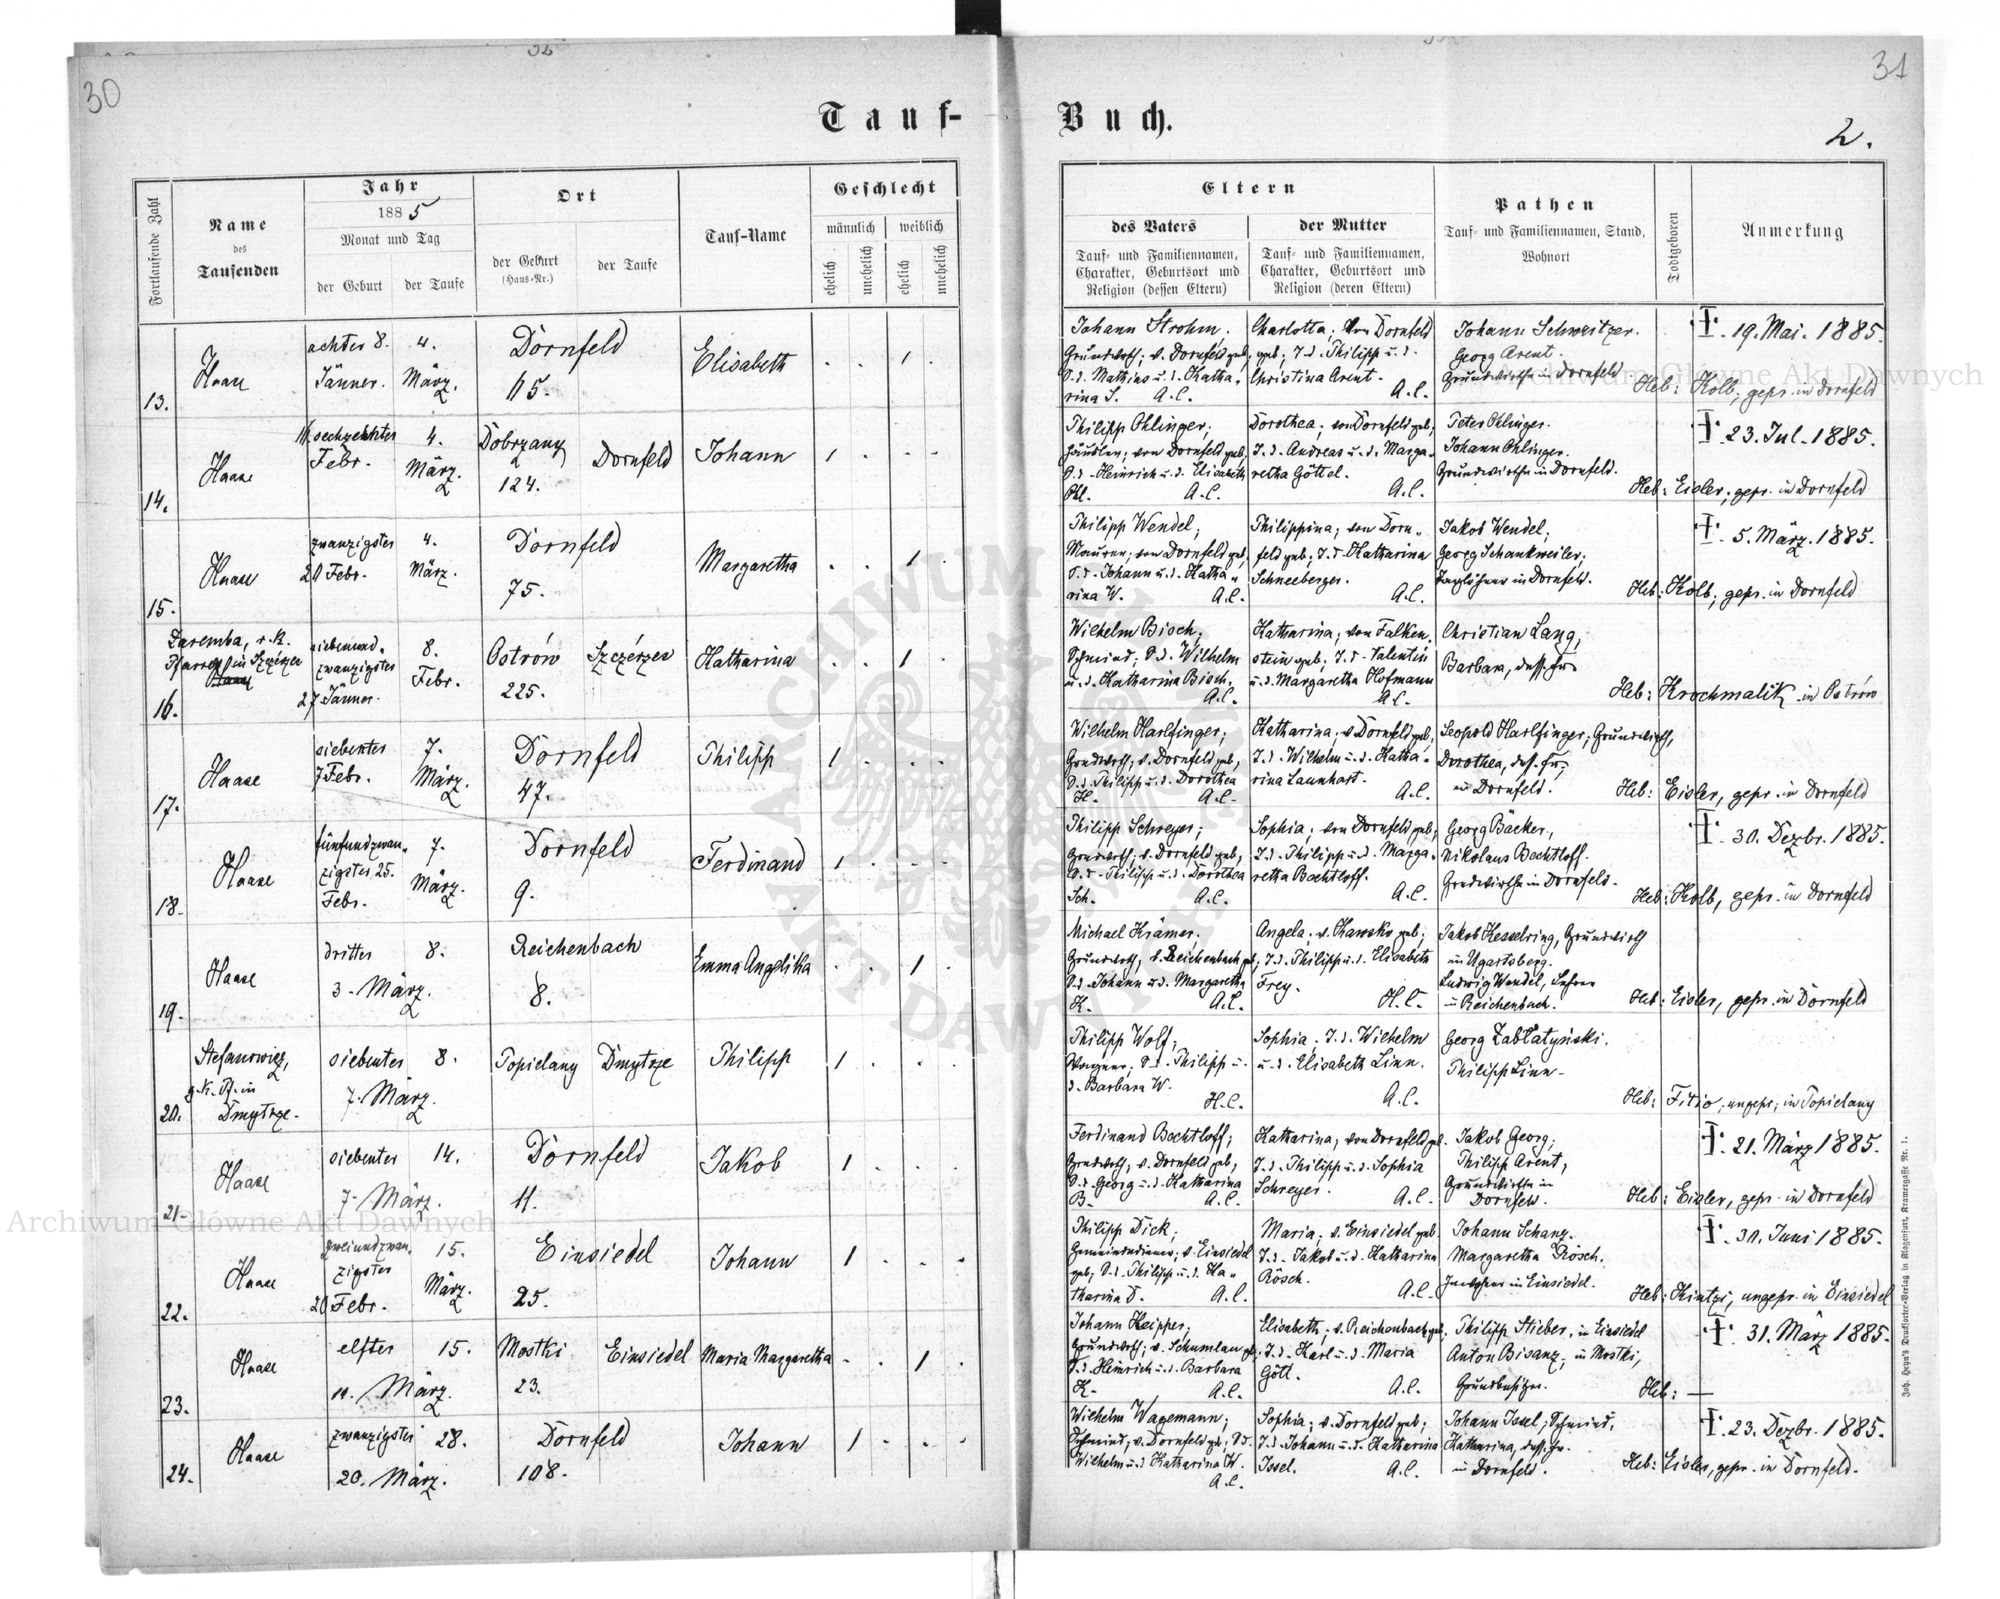 30
31
Tauf-
Buch.
2.
Fortlaufende Zahl
Name
des
Taufenden
Jahr
1885
Monat und Tag
der Geburt
der Taufe
Ort
der Geburt
(Haus-Nr.)
der Taufe
Tauf-Name
Geschlecht
männlich
weiblich
ehelich
unehelich
ehelich
unehelich
Eltern
des Vaters
Tauf- und Familiennamen,
Charakter, Geburtsort und
Religion (dessen Eltern)
der Mutter
Tauf- und Familiennamen,
Charakter, Geburtsort und
Religion (deren Eltern)
Pathen
Tauf- und Familiennamen, Stand,
Wohnort
Todtgeboren
Anmerkung
13.
Haase
achter 8.
Jänner.
4.
März.
Dornfeld
115.
Elisabeth
. . 1 .
Johann Strohm,
Grundwirth; v. Dornfeld geb,
S.d. Mathias u. d. Katha-
rina S. A.C.
Charlotta; von Dornfeld
geb; T.d. Philipp u. d.
Christina Arent.
A.C.
Johann Schweitzer.
Georg Arent.
Grundwirthe in Dornfeld
† 19. Mai. 1885.
Heb: Kolb; gepr. in Dornfeld
14.
Haase
16. sechzehnter
Febr.
4.
März.
Dobrzany
124.
Dornfeld
Johann
1 . . .
Philipp Ohlinger;
Häusler; von Dornfeld geb,
S.d. Heinrich u. d. Elisabeth
Ohl. A.C.
Dorothea; von Dornfeld geb;
T.d. Andreas u. d. Marga-
retha Göttel.
A.C.
Peter Ohlinger.
Johann Ohlinger.
Grundwirthe in Dornfeld.
† 23. Jul. 1885.
Heb: Eisler; gepr. in Dornfeld
15.
Haase
zwanzigster
20 Febr.
4.
März.
Dornfeld
75.
Margaretha
. . 1 .
Philipp Wendel;
Maurer; von Dornfeld geb,
S.d. Johann u. d. Katha-
rina W. A.C.
Philippina; von Dorn-
feld geb; T.d. Katharina
Schneeberger.
A.C.
Jakob Wendel;
Georg Schankweiler;
Taglöhner in Dornfeld.
† 5. März. 1885.
Heb: Kolb; gepr. in Dornfeld
16.
Zaremba, r.k.
Pfarrer in Szczérzec
siebenund-
zwanzigster
27 Jänner.
8.
Febr.
Ostrów
225.
Szczérzec
Katharina
. . 1 .
Wilhelm Bisch;
Schmied; S.d. Wilhelm
u. d. Katharina Bisch.
A.C.
Katharina; von Falken-
stein geb; T.d. Valentin
u. d. Margaretha Hofmann
A.C.
Christian Lang,
Barbara, dess. Fr.
Heb: Krochmalik in Ostrów
17.
Haase
siebenter
7 Febr.
7.
März.
Dornfeld
47.
Philipp
1 . . .
Wilhelm Harlfinger;
Grundwirth; v. Dornfeld geb,
S.d. Philipp u. d. Dorothea
H. A.C.
Katharina; v. Dornfeld geb;
T.d. Wilhelm u. d. Katha-
rina Launhart.
A.C.
Leopold Harlfinger; Grundwirth,
Dorothea, dess. Fr.,
in Dornfeld.
Heb: Eisler, gepr. in Dornfeld
18.
Haase
fünfundzwan-
zigster 25.
Febr.
7.
März.
Dornfeld
9.
Ferdinand
1 . . .
Philipp Schreyer;
Grundwirth; v. Dornfeld geb,
S.d. Philipp u. d. Dorothea
Sch. A.C.
Sophia; von Dornfeld geb;
T.d. Philipp u. d. Marga-
retha Bechtloff.
A.C.
Georg Bäcker,
Nikolaus Bechtloff.
Grundwirthe in Dornfeld.
† 30. Dezbr. 1885.
Heb: Kolb, gepr. in Dornfeld
19.
Haase
dritter
3. März.
8.
Reichenbach
8.
Emma Angelika
. . 1 .
Michael Krämer;
Grundwirth, v. Reichenbach geb;
S.d. Johann u. d. Margaretha
K. A.C.
Angela; v. geb;
T.d. Philipp u. d. Elisabeth
Frey. H.C.
Jakob Kesselring, Grundwirth
in Ugartsberg.
Ludwig Wendel, Lehrer
in Reichenbach.
Heb: Eisler, gepr. in Dornfeld
20.
Stefanowicz,
g.k. Pf. in
Dmytrze.
siebenter
7. März.
8.
Topielany
Dmytrze
Philipp
1 . . .
Philipp Wolf;
S.d. Philipp u.
d. Barbara W.
H.C.
Sophia; T.d. Wilhelm
u. d. Elisabeth Linn.
A.C.
Georg Zabłatyński.
Philipp Linn.
Heb: ungepr; in Topielany
21.
Haase
siebenter
7. März.
14.
Dornfeld
11.
Jakob
1 . . .
Ferdinand Bechtloff;
Grundwirth; v. Dornfeld geb,
S.d. Georg u. d. Katharina
B. A.C.
Katharina; von Dornfeld geb.
T.d. Philipp u. d. Sophia
Schreyer. A.C.
Jakob Georg;
Philipp Arent,
Grundwirthe in
Dornfeld.
† 21. März 1885.
Heb: Eisler, gepr. in Dornfeld
22.
Haase
zweiundzwan-
zigster
Febr.
15.
März.
Einsiedel
25.
Johann
1 . . .
Philipp Dick;
Gemeindediener; v. Einsiedel
geb; S.d. Philipp u. d. Ka-
tharina D. A.C.
Maria; v. Einsiedel geb.
T.d. Jakob u. d. Katharina
Rösch.
A.C.
Johann Schanz.
Margaretha Rösch.
in Einsiedel.
† 30. Juni 1885.
Heb: Kintzi, ungepr. in Einsiedel
23.
Haase
elfter
11. März.
15.
Mostki
23.
Einsiedel
Maria Margaretha
. . 1 .
Johann Keipper;
Grundwirth; v. Schumlau geb;
S.d. Heinrich u. d. Barbara
K. A.C.
Elisabeth; v. Reichenbach geb.
T.d. Karl u. d. Maria
Gött.
A.C.
Philipp Stieber, in Einsiedel
Anton Bisanz; in Mostki,
Grundbesitzer.
† 31. März 1885.
Heb: —
24.
Haase
zwanzigster
20. März.
28.
Dornfeld
108.
Johann
1 . . .
Wilhelm Wagemann;
Schmied; v. Dornfeld geb; S.d.
Wilhelm u. d. Katharina W.
A.C.
Sophia; v. Dornfeld geb;
T.d. Johann u. d. Katharina
Issel. A.C.
Johann Issel; Schmied,
Katharina, dess. Fr.
in Dornfeld.
† 23. Dezbr. 1885.
Heb: Eisler, gepr. in Dornfeld.
Joh. Heyn's Drucksorten-Verlag in Klagenfurt, Kramergasse Nr. 1.
Archiwum Główne Akt Dawnych
Archiwum Główne Akt Dawnych
ARCHIWUM
AKT DAWNYCH